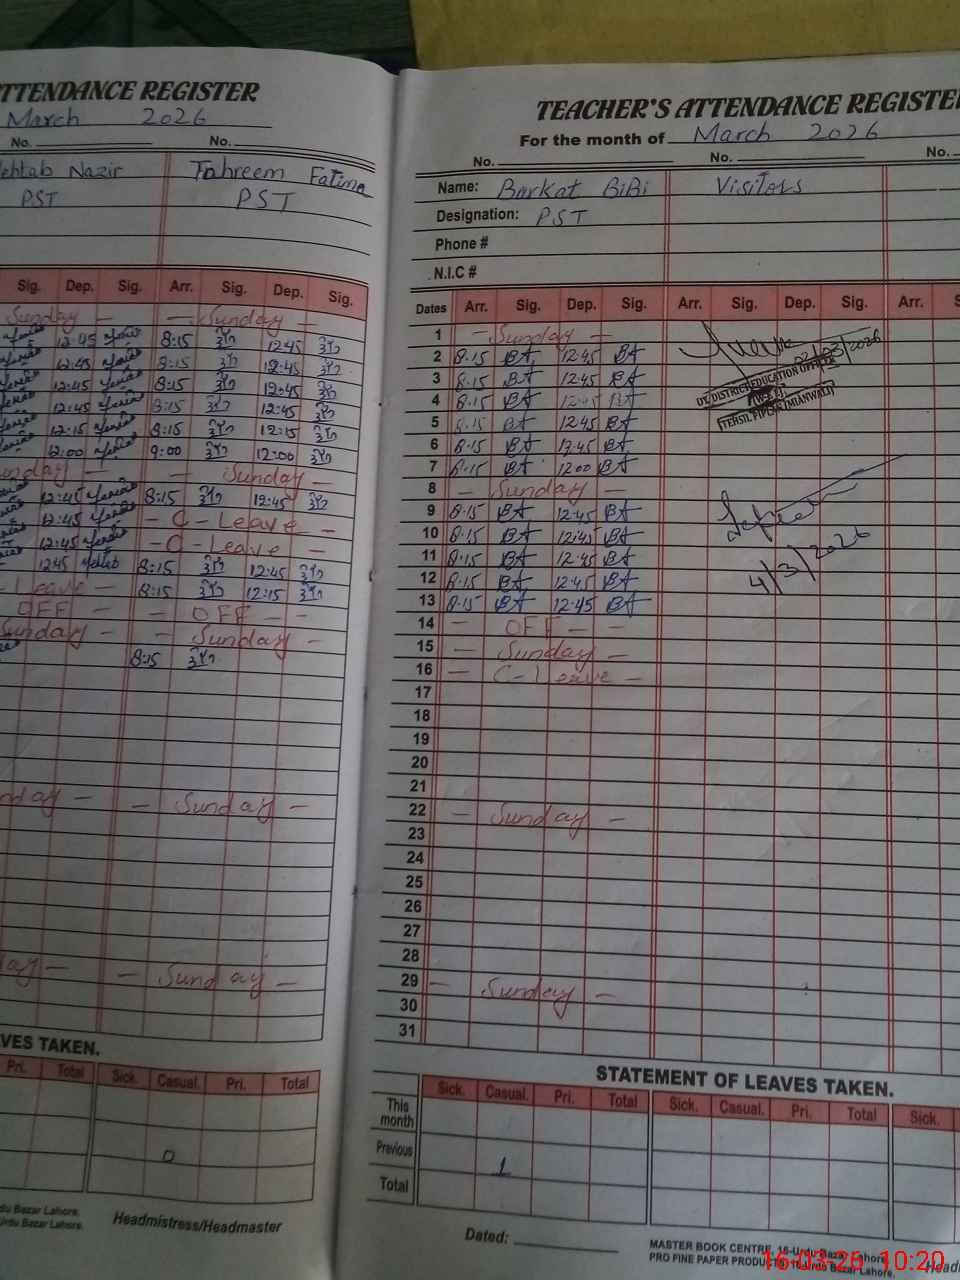 ATTENDANCE REGISTER
March 2026
No. No.
Mehtab Nazir Tahreem Fatima
PST PST
Sig. Dep. Sig. Arr. Sig. Dep. Sig.
Sunday — — Sunday —
12:45 8:15 12:45
12:45 8:15 12:45
12:45 8:15 12:45
12:45 8:15 12:45
12:15 8:15 12:15
12:00 9:00 12:00
Sunday — — Sunday —
12:45 8:15 12:45
12:45 — C - Leave —
12:45 — C - Leave —
12:45 8:15 12:45
- Leave — 8:15 12:15
OFF — — OFF —
Sunday — — Sunday —
8:15
Sunday — — Sunday —
— Sunday —
LEAVES TAKEN.
Pri. Total Sick. Casual. Pri. Total
0
Urdu Bazar Lahore.
Urdu Bazar Lahore.
Headmistress/Headmaster
TEACHER'S ATTENDANCE REGISTER
For the month of March 2026
No. No. No.
Name: Barkat BiBi Visitors
Designation: PST
Phone #
N.I.C #
Dates Arr. Sig. Dep. Sig. Arr. Sig. Dep. Sig. Arr.
1 — Sunday —
2 8.15 BA 12:45 BA
3 8.15 BA 12:45 BA
4 8.15 BA 12:45 BA
5 8.15 BA 12:45 BA
6 8.15 BA 12:45 BA
7 8.15 BA 12:00 BA
8 — Sunday —
9 8.15 BA 12:45 BA
10 8.15 BA 12:45 BA
11 8.15 BA 12:45 BA
12 8.15 BA 12:45 BA
13 8.15 BA 12:45 BA
14 — OFF —
15 — Sunday —
16 — C - Leave —
17
18
19
20
21
22 — Sunday —
23
24
25
26
27
28
29 — Sunday —
30
31
02/03/2026
DY. DISTRICT EDUCATION OFFICER
TEHSIL PIPLAN (MIANWALI)
4/3/2026
STATEMENT OF LEAVES TAKEN.
Sick. Casual. Pri. Total Sick. Casual. Pri. Total Sick.
This month
Previous 1
Total
Dated:
MASTER BOOK CENTRE, 16-Urdu Bazar Lahore.
PRO FINE PAPER PRODUCTS, 16 Urdu Bazar Lahore.
16-03-26 10:20